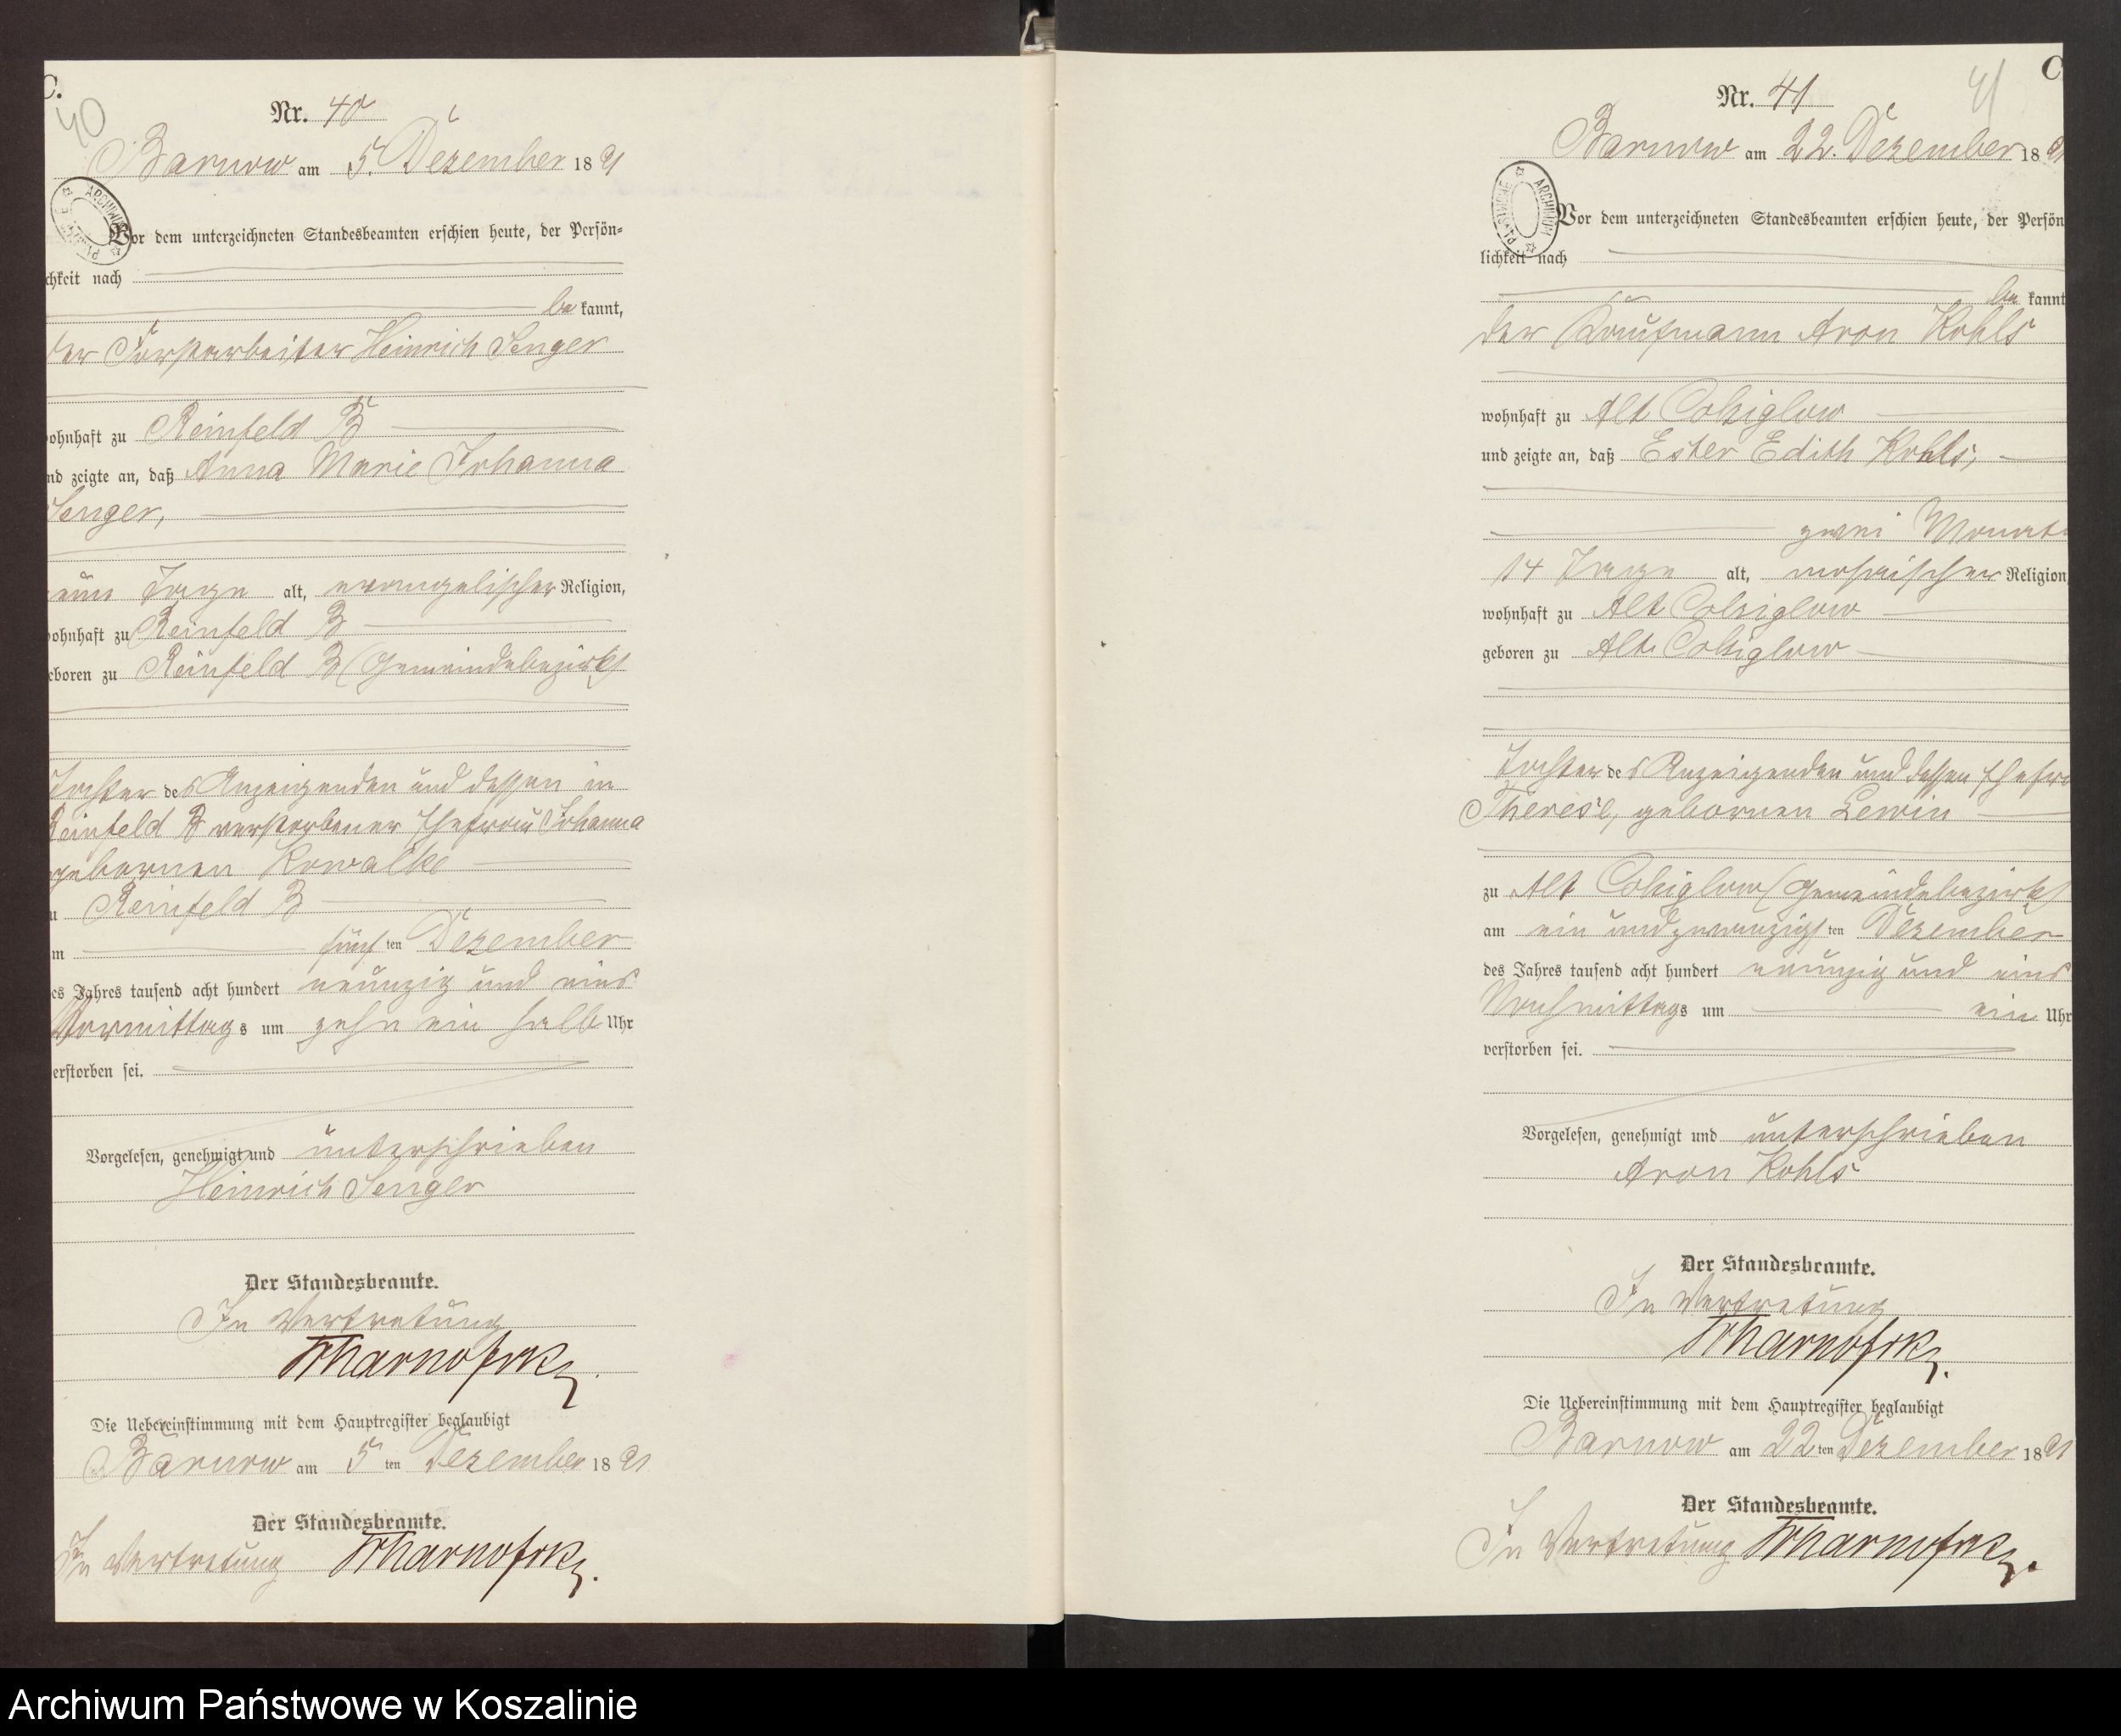 C.
40
Nr. 40
Barnow am 5. Dezember 1891
ARCHIWUM
Vor dem unterzeichneten Standesbeamten erschien heute, der Persön-
chkeit nach
be kannt,
der Forstarbeiter Heinrich Senger
ohnhaft zu Reinfeld B
nd zeigte an, daß Anna Marie Johanna
Senger,
neun Tage alt, evangelischer Religion,
ohnhaft zu Reinfeld B
eboren zu Reinfeld B (Gemeindebezirk)
Tochter des Anzeigenden und dessen in
Reinfeld B verstorbener Ehefrau Johanna
gebornen Kowalke
u Reinfeld B
m fünf ten Dezember
es Jahres tausend acht hundert neunzig und eins
Vormittags um zehn ein halb Uhr
erstorben sei.
Vorgelesen, genehmigt und unterschrieben
Heinrich Senger
Der Standesbeamte.
In Vertretung
Die Uebereinstimmung mit dem Hauptregister beglaubigt
Barnow am 5 ten Dezember 1891
Der Standesbeamte.
In Vertretung
C
41
Nr. 41
Barnow am 22. Dezember 1891
ARCHIWUM
Vor dem unterzeichneten Standesbeamten erschien heute, der Persön
lichkeit nach
be kannt
der Kaufmann Aron Kohls
wohnhaft zu Alt Colziglow
und zeigte an, daß Ester Edith Kohls,
zwei Monate
14 Tage alt, mosaischer Religion
wohnhaft zu Alt Colziglow
geboren zu Alt Colziglow
Tochter des Anzeigenden und dessen Ehefrau
Therese, gebornen Lewin
zu Alt Colziglow (Gemeindebezirk)
am ein und zwanzigsten Dezember
des Jahres tausend acht hundert neunzig und eins
Nachmittags um ein Uhr
verstorben sei.
Vorgelesen, genehmigt und unterschrieben
Aron Kohls
Der Standesbeamte.
In Vertretung
Die Uebereinstimmung mit dem Hauptregister beglaubigt
Barnow am 22 ten Dezember 1891
Der Standesbeamte.
In Vertretung
Archiwum Państwowe w Koszalinie